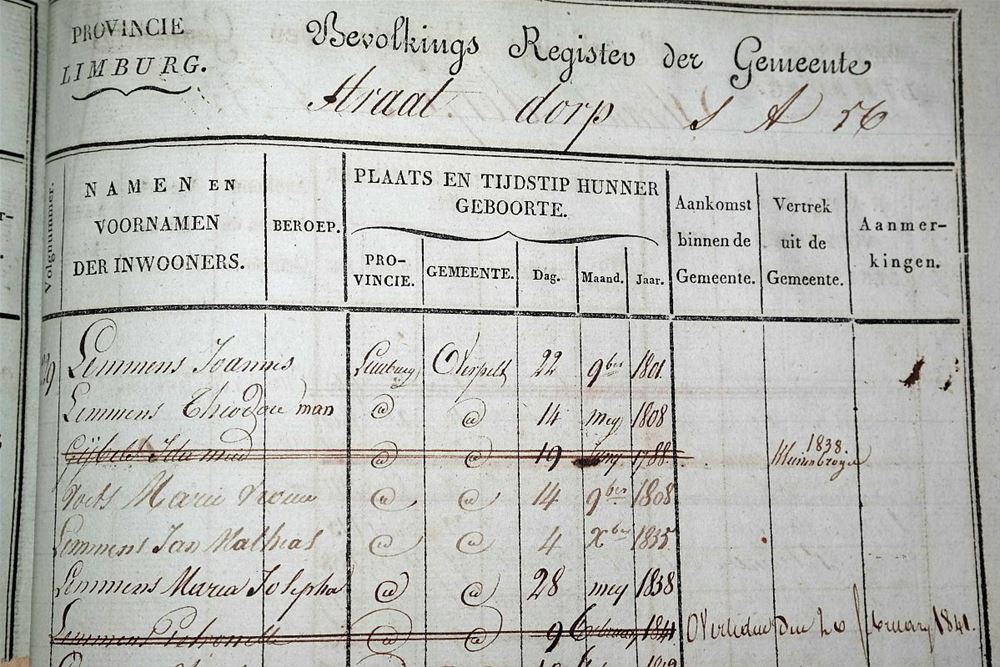 PROVINCIE
LIMBURG.
Bevolkings Register der Gemeente
Straat dorp S A 56
Volgnummer.
NAMEN EN
VOORNAMEN
DER INWOONERS.
BEROEP.
PLAATS EN TIJDSTIP HUNNER
GEBOORTE.
PRO-
VINCIE.
GEMEENTE.
Dag.
Maand.
Jaar.
Aankomst
binnen de
Gemeente.
Vertrek
uit de
Gemeente.
Aanmer-
kingen.
Lemmens Joannis Limburg Overpelt 22 9ber 1801
Lemmens Theodor man @ @ 14 mey 1808
@ @ 19 Juny 1788 1838
Marie @ @ 14 9ber 1808
Lemmens Jan Mathias @ @ 4 Xber 1835
Lemmens Maria Josepha @ @ 28 mey 1838
Lemmens Petronella @ @ 9 February 1841 Overleden den 20 february 1841.